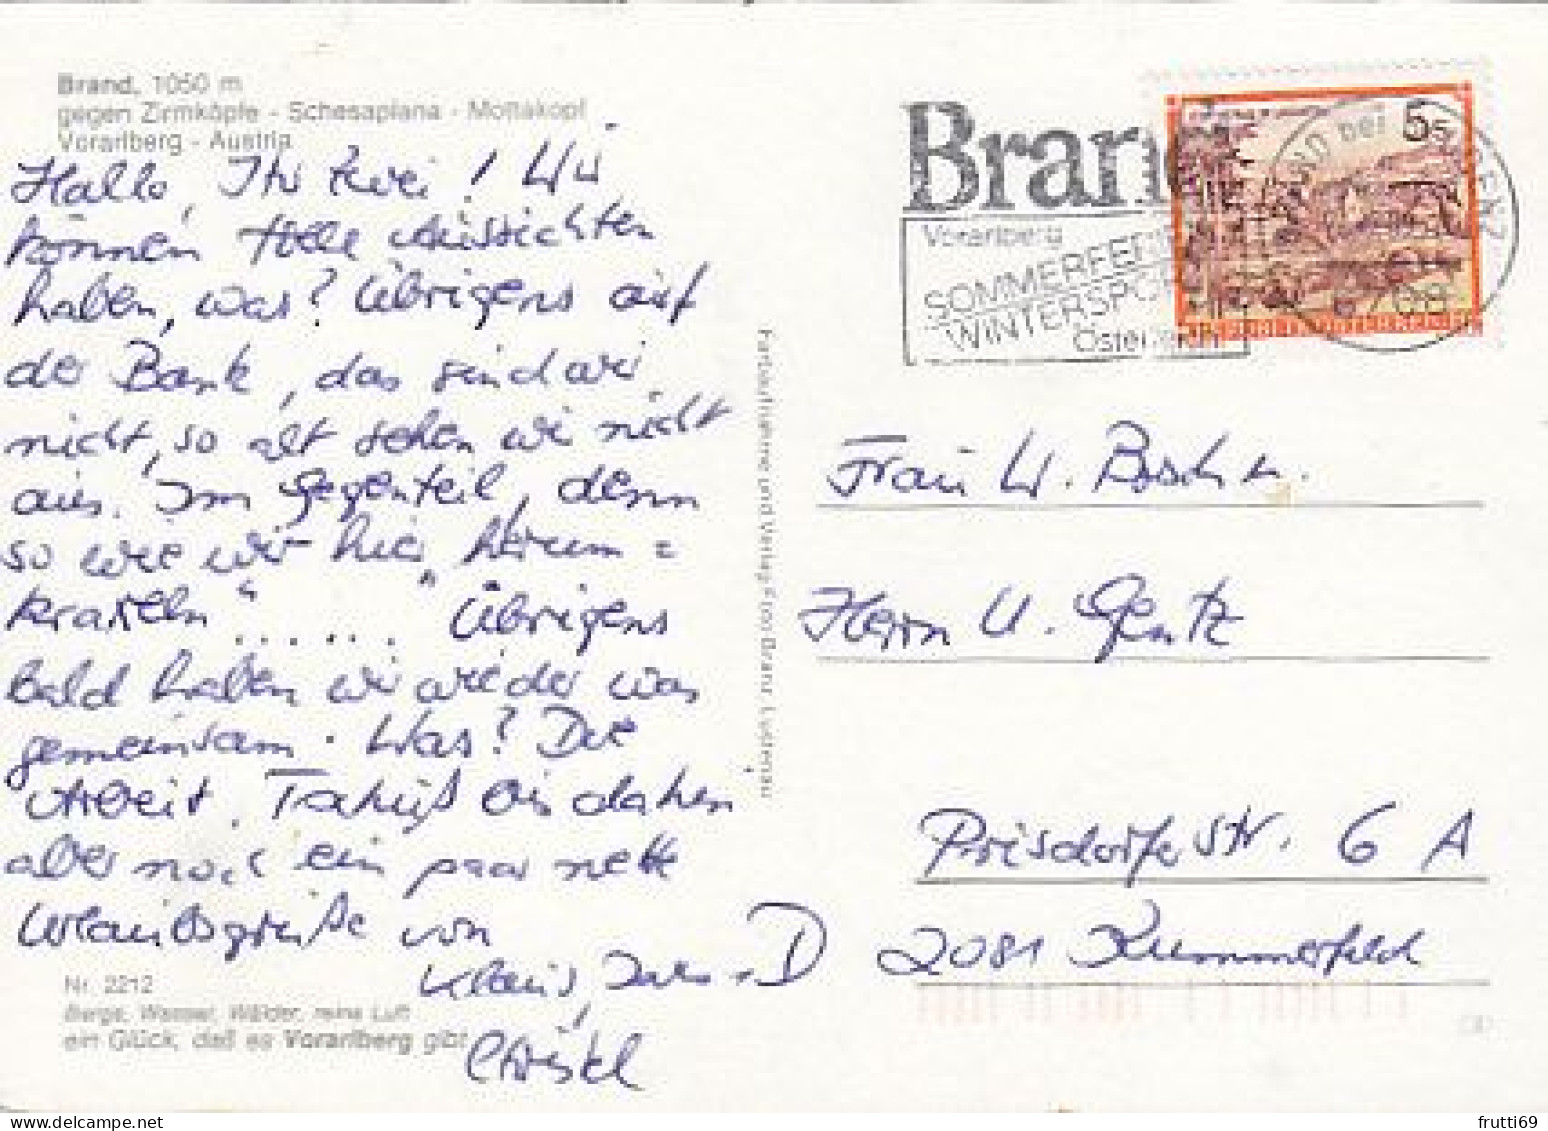 Brand, 1050 m
gegen Zirmköpfe - Schesaplana - Mottakopf
Vorarlberg - Austria
Hallo, Ihr Zwei! Wir
können tolle Aussichten
haben, was? Übrigens auf
der Bank, das sind wir
nicht, so alt sehen wir nicht
aus. Im Gegenteil, denn
so wie wir hier „herum=
kraxeln“ ...... Übrigens
bald haben wir wieder was
gemeinsam. Was? Die
Arbeit. Tschüß bis dahin
aber noch ein paar nette
Urlaubsgrüße von
Klaus,
Christel
Nr. 2212
Berge, Wasser, Wälder, reine Luft
ein Glück, daß es Vorarlberg gibt
Farbaufnahme und Verlag Foto Branz, Lustenau
Brand
Vorarlberg
SOMMERFERIEN
WINTERSPORT
Österreich
5S
REPUBLIK ÖSTERREICH
BRAND bei BLUDENZ
6708
Frau W.
Herrn U. Gentz
Prisdorfer Str. 6 A
D 2081 Kummerfeld
frutti69